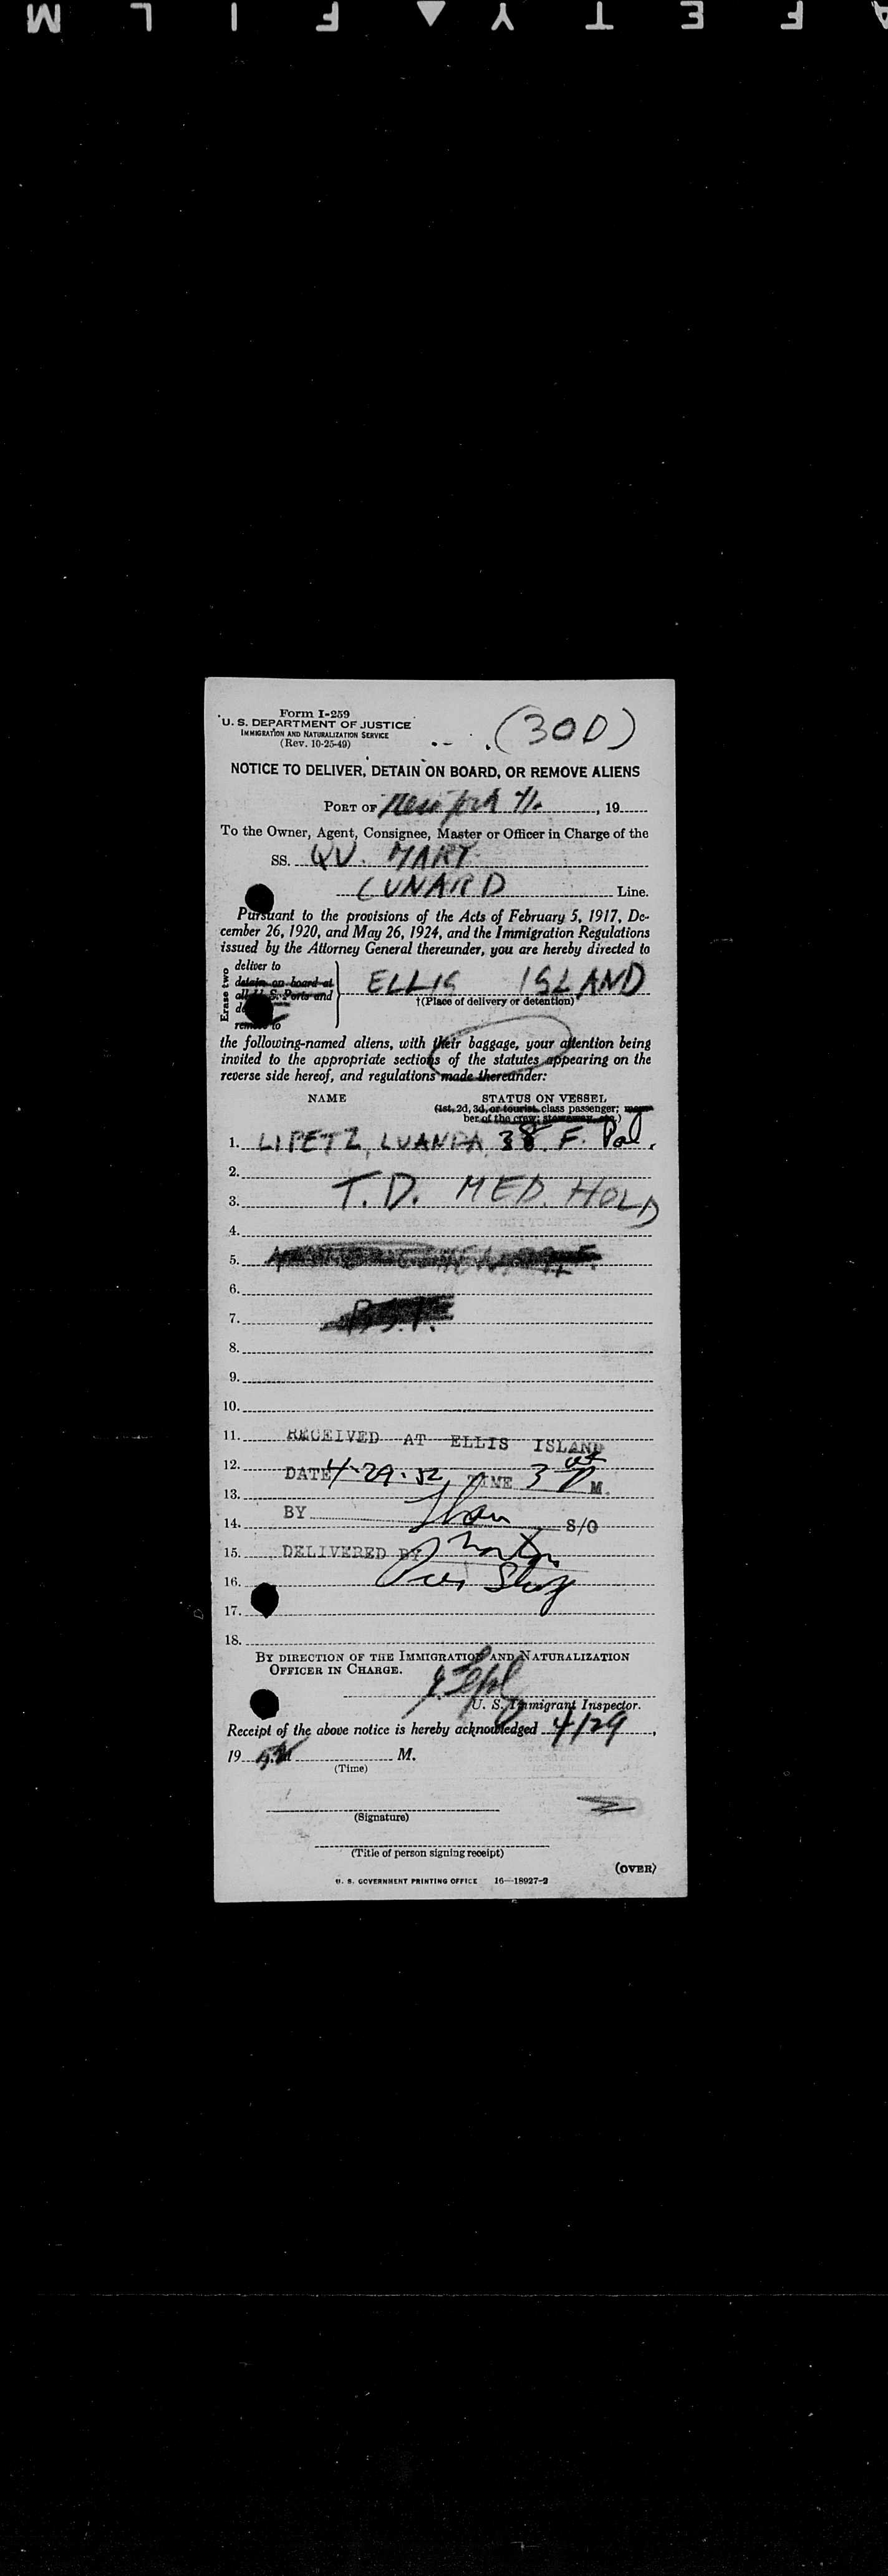 SAFETY FILM
Form I-259
U. S. DEPARTMENT OF JUSTICE
IMMIGRATION AND NATURALIZATION SERVICE
(Rev. 10-25-49)
(30D)
NOTICE TO DELIVER, DETAIN ON BOARD, OR REMOVE ALIENS
PORT OF New York, 19
To the Owner, Agent, Consignee, Master or Officer in Charge of the
SS. QU. MARY
CUNARD Line.
Pursuant to the provisions of the Acts of February 5, 1917, De-
cember 26, 1920, and May 26, 1924, and the Immigration Regulations
issued by the Attorney General thereunder, you are hereby directed to
Erase two
deliver to
detain on board at
all U. S. Ports and
remove to
ELLIS ISLAND
†(Place of delivery or detention)
the following-named aliens, with their baggage, your attention being
invited to the appropriate sections of the statutes appearing on the
reverse side hereof, and regulations made thereunder:
NAME STATUS ON VESSEL
(1st, 2d, 3d, or tourist class passenger; mem-
ber of the crew; stowaway, etc.)
1. LIPETZ, 38 F. Pol.
2.
3. T.D. MED. HOLD
4.
5.
6.
7.
8.
9.
10.
11. RECEIVED AT ELLIS ISLAND
12. DATE 4-29-52 TIME 3 P M.
13.
BY
14. S/O
15. DELIVERED BY
16.
17.
18.
BY DIRECTION OF THE IMMIGRATION AND NATURALIZATION
OFFICER IN CHARGE.
U. S. Immigrant Inspector.
Receipt of the above notice is hereby acknowledged 4/29,
19 M.
(Time)
(Signature)
(Title of person signing receipt)
(OVER)
U. S. GOVERNMENT PRINTING OFFICE 16—18927-2